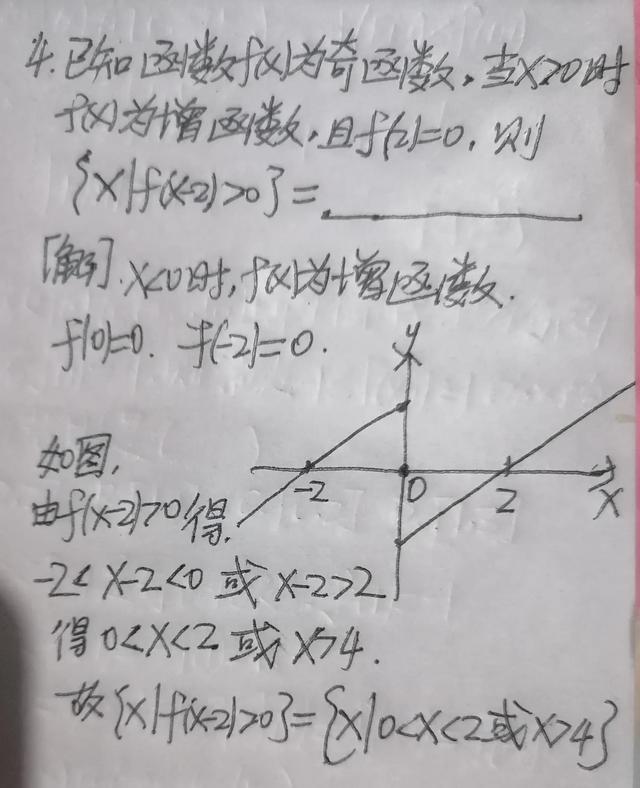 4.已知函数f(x)为奇函数,当x>0时
f(x)为增函数,且f(2)=0,则
{x|f(x-2)>0}=
[解].x<0时,f(x)为增函数.
f(0)=0. f(-2)=0.
y
如图,
-2 0 2 x
由f(x-2)>0得,
-2<x-2<0 或 x-2>2
得 0<x<2 或 x>4.
故{x|f(x-2)>0}={x|0<x<2或x>4}